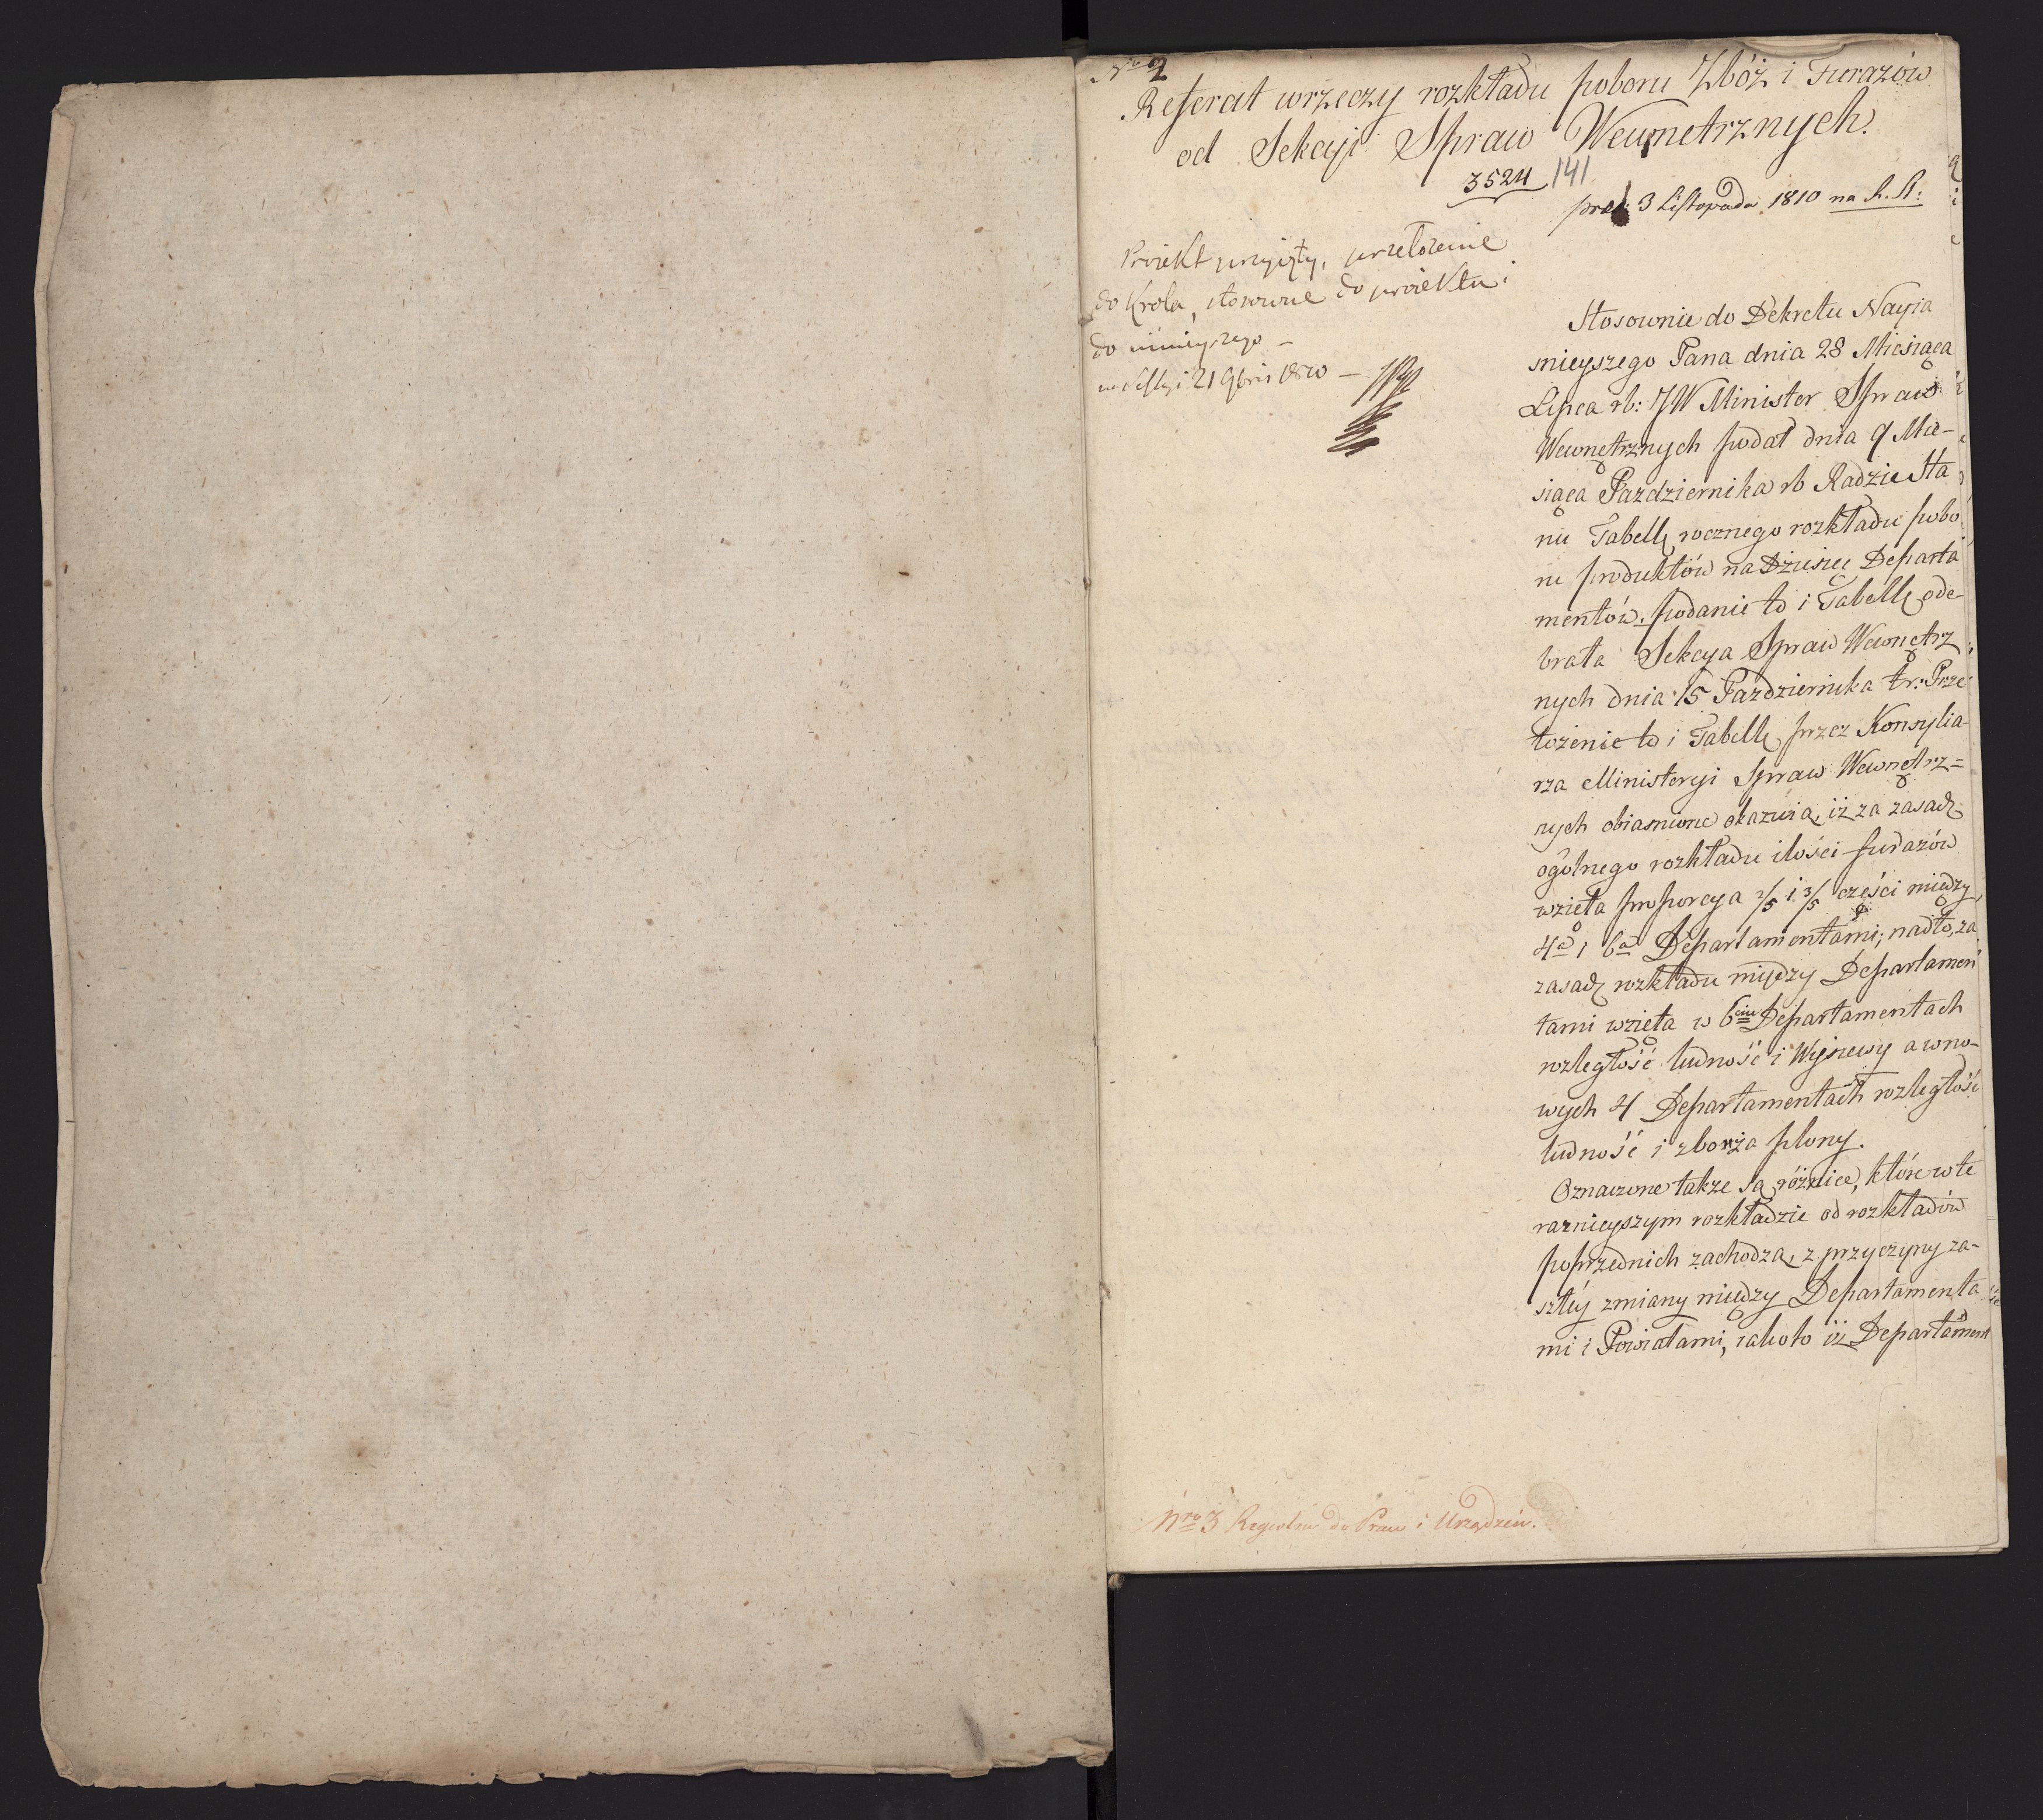 Nro 2
Referat wrzeczy rozkładu poboru Zbóż i Furazów
od Sekcyi Spraw Wewnetrznych.
3524 141
pred: 3 Listopada 1810 na R. St:
Proiekt przyięty, przełożenie
do Krola, stosowne do proiektu
do ninieyszego –
21 9bris 1810 –
Stosownie do Dekretu Nayia
snieyszego Pana dnia 28 Miesiąca
Lipca rb: JW Minister Spraw
Wewnętrznych podał dnia 9 Mie-
siąca Pazdziernika rb Radzie Sta
nu Tabellę rocznego rozkładu pobo
ru produktów na Dziesięć Departa
mentów. podanie to i Tabellę ode-
brała Sekcya Spraw Wewnętrz
nych dnia 15 Pazdziernika tr: Prze
łożenie to i Tabellę przez Konsylia-
rza Ministeryi Spraw Wewnętrz=
nych obiasnione okazuią, iż za zasadę
ogólnego rozkładu ilości furazów
wzięta proporcya 2/5 i 3/5 części między
4a i 6a Departamentami; nadto, za
zasadę rozkładu między Departamen
tami wzięta w 6ciu Departamentach
rozległość ludność i Wysiewy a wno-
wych 4 Departamentach rozległość
ludność i zborża plony.
Oznaczone takze są różnice, które wte
raznieyszym rozkładzie od rozkładów
poprzednich zachodzą, z przyczyny za-
szłéy zmiany między Departamenta
mi i Powiatami, iakoto iż Departament
Nro 3 Regestru do Praw i Urządzeń.